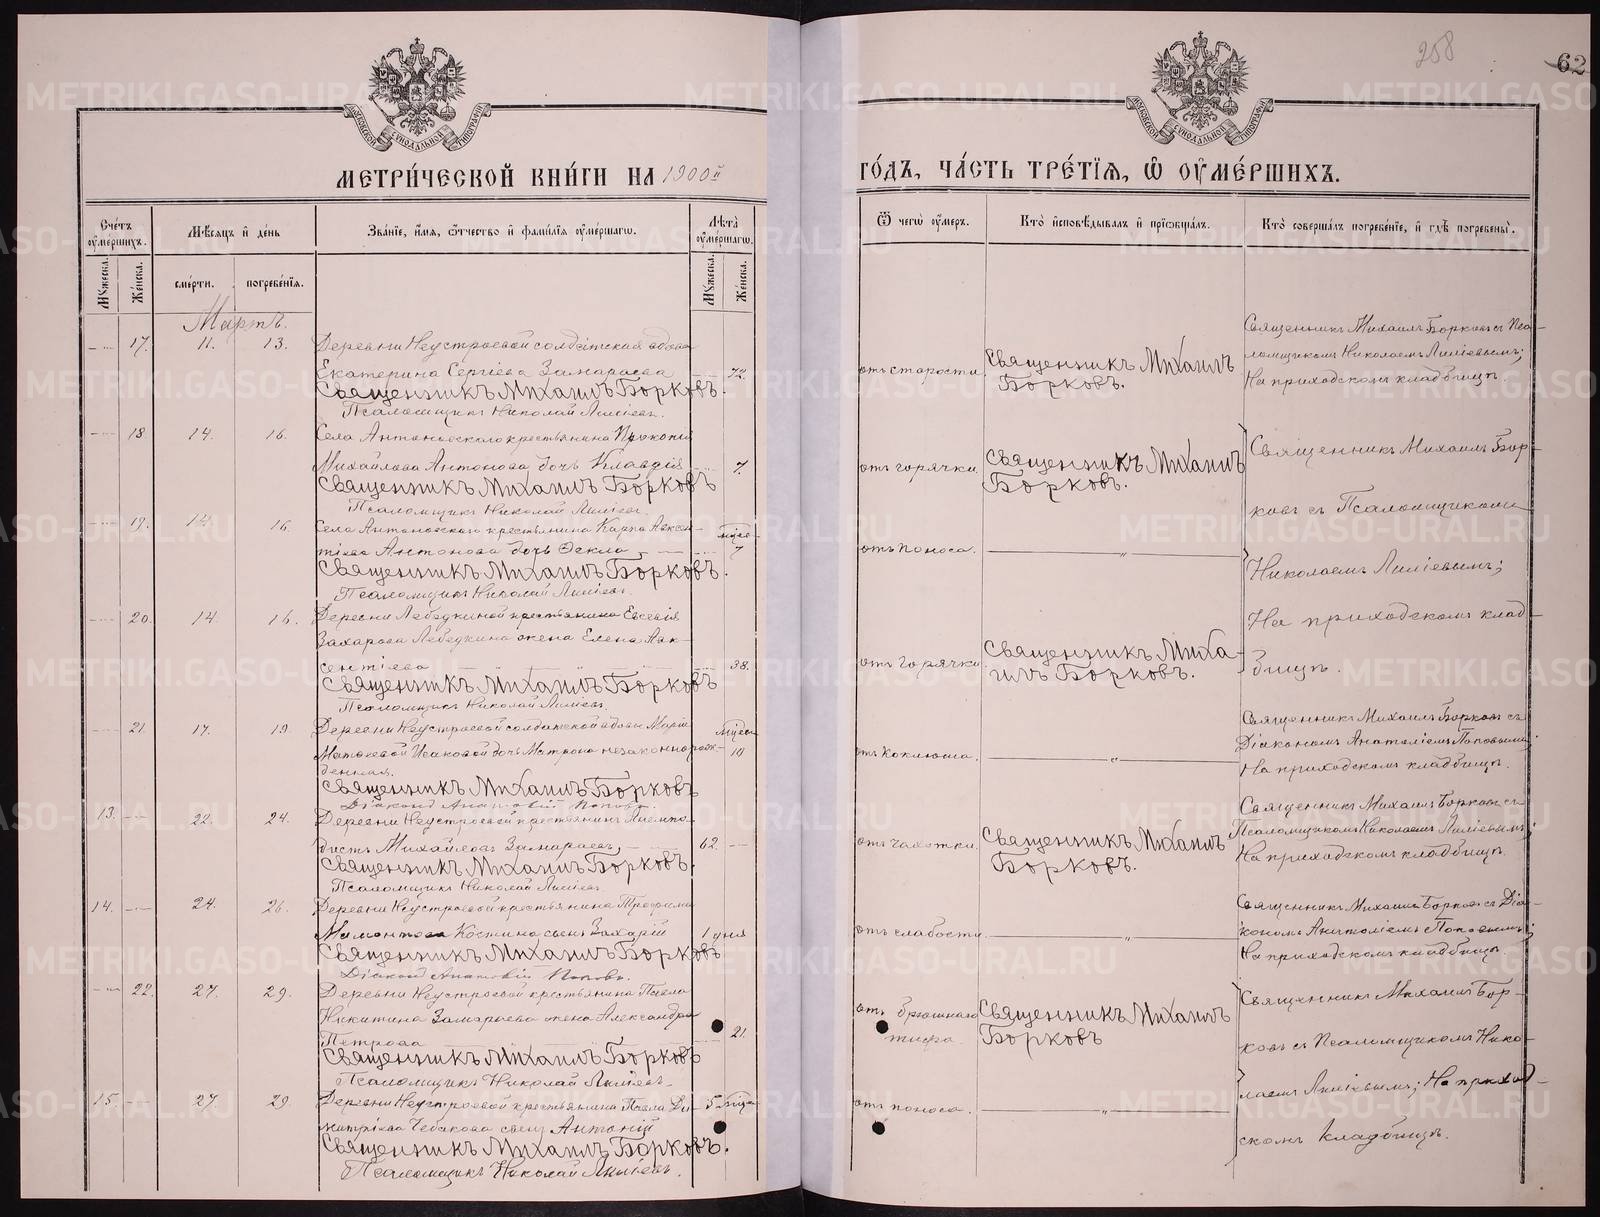 258
62
МЕТРИ́ЧЕСКОЙ КНИ́ГИ НА 1900й
ГО́ДЪ, ЧА́СТЬ ТРЕ́ТІѦ, Ѽ ОУ҆МЕ́РШИХЪ.
Сче́тъ оу҆ме́ршихъ.
Мѣ́сяцъ и҆ де́нь
Зва́ніе, и҆́мя, ѻ҆́тчество и҆ фами́лія оу҆ме́ршагѡ.
Лѣ́та оу҆ме́ршагѡ.
Ѿ чегѡ̀ оу҆́меръ.
Кто̀ и҆сповѣ́дывалъ и҆ прїѡбща́лъ.
Кто̀ соверша́лъ погребе́ніе, и҆ гдѣ̀ погребены̀.
Му́жеска.
Же́нска.
сме́рти.
погребе́нія.
Му́жеска.
Же́нска.
Мартъ.
17. 11. 13. Деревни Неустроевой солдатская вдова
Екатерина Сергіева Замараева 72.
Священникъ Михаилъ Борковъ.
Псаломщикъ Николай Лиліевъ.
отъ старости.
Священникъ Михаилъ
Борковъ.
Священникъ Михаилъ Борковъ съ Пса-
ломщикомъ Николаемъ Лиліевымъ;
На приходскомъ кладбищѣ.
18. 14. 16. Села Антоновского крестьянина Прокопія
Михайлова Антонова дочь Клавдія 7.
Священникъ Михаилъ Борковъ
Псаломщикъ Николай Лиліевъ.
отъ горячки.
Священникъ Михаилъ
Борковъ.
Священникъ Михаилъ Бор-
ковъ съ Псаломщикомъ
19. 14. 16. Села Антоновского крестьянина Карпа Авксен-
тіева Антонова дочь Ѳекла мѣсяц. 7
Священникъ Михаилъ Борковъ.
Псаломщикъ Николай Лиліевъ.
отъ поноса. "
Николаемъ Лиліевымъ;
20. 14. 16. Деревни Лебедкиной крестьянина Евсевія
Захарова Лебедкина жена Елена Авк-
сентіева 38.
Священникъ Михаилъ Борковъ
Псаломщикъ Николай Лиліевъ.
отъ горячки.
Священникъ Миха-
илъ Борковъ.
На приходскомъ клад-
бищѣ.
21. 17. 19. Деревни Неустроевой солдатской вдовы Маріи
Матвеевой Исаковой дочь Матрона незаконнорож-
денная. мѣсяц. 10
Священникъ Михаилъ Борковъ
Діаконъ Анатолій Поповъ.
отъ коклюша. "
Священникъ Михаилъ Борковъ съ
Діакономъ Анатоліемъ Поповымъ;
На приходскомъ кладбищѣ.
13. 22. 24. Деревни Неустроевой крестьянинъ
Михайловъ Замараевъ 62.
Священникъ Михаилъ Борковъ.
Псаломщикъ Николай Лиліевъ.
отъ чахотки.
Священникъ Михаилъ
Борковъ.
Священникъ Михаилъ Борковъ съ
Псаломщикомъ Николаемъ Лиліевымъ;
На приходскомъ кладбищѣ.
14. 24. 26. Деревни Неустроевой крестьянина Трофима
Мамонтова Костина сынъ Захарій 1 дня
Священникъ Михаилъ Борковъ
Діаконъ Анатолій Поповъ.
отъ слабости. "
Священникъ Михаилъ Борковъ съ Діа-
кономъ Анатоліемъ Поповымъ;
На приходскомъ кладбищѣ.
22. 27. 29. Деревни Неустроевой крестьянина Павла
Никитина Замараева жена Александра
Петрова 21.
Священникъ Михаилъ Борковъ
Псаломщикъ Николай Лиліевъ.
отъ брюшнаго
тифа.
Священникъ Михаилъ
Борковъ
Священникъ Михаилъ Бор-
ковъ съ Псаломщикомъ Нико-
15. 27. 29. Деревни Неустроевой крестьянина Павла Ди-
митріева сынъ Антоній 5 мѣсяц.
Священникъ Михаилъ Борковъ.
Псаломщикъ Николай Лиліевъ.
отъ поноса. "
лаемъ Лиліевымъ; На приход-
скомъ кладбищѣ.
METRIKI.GASO-URAL.RU